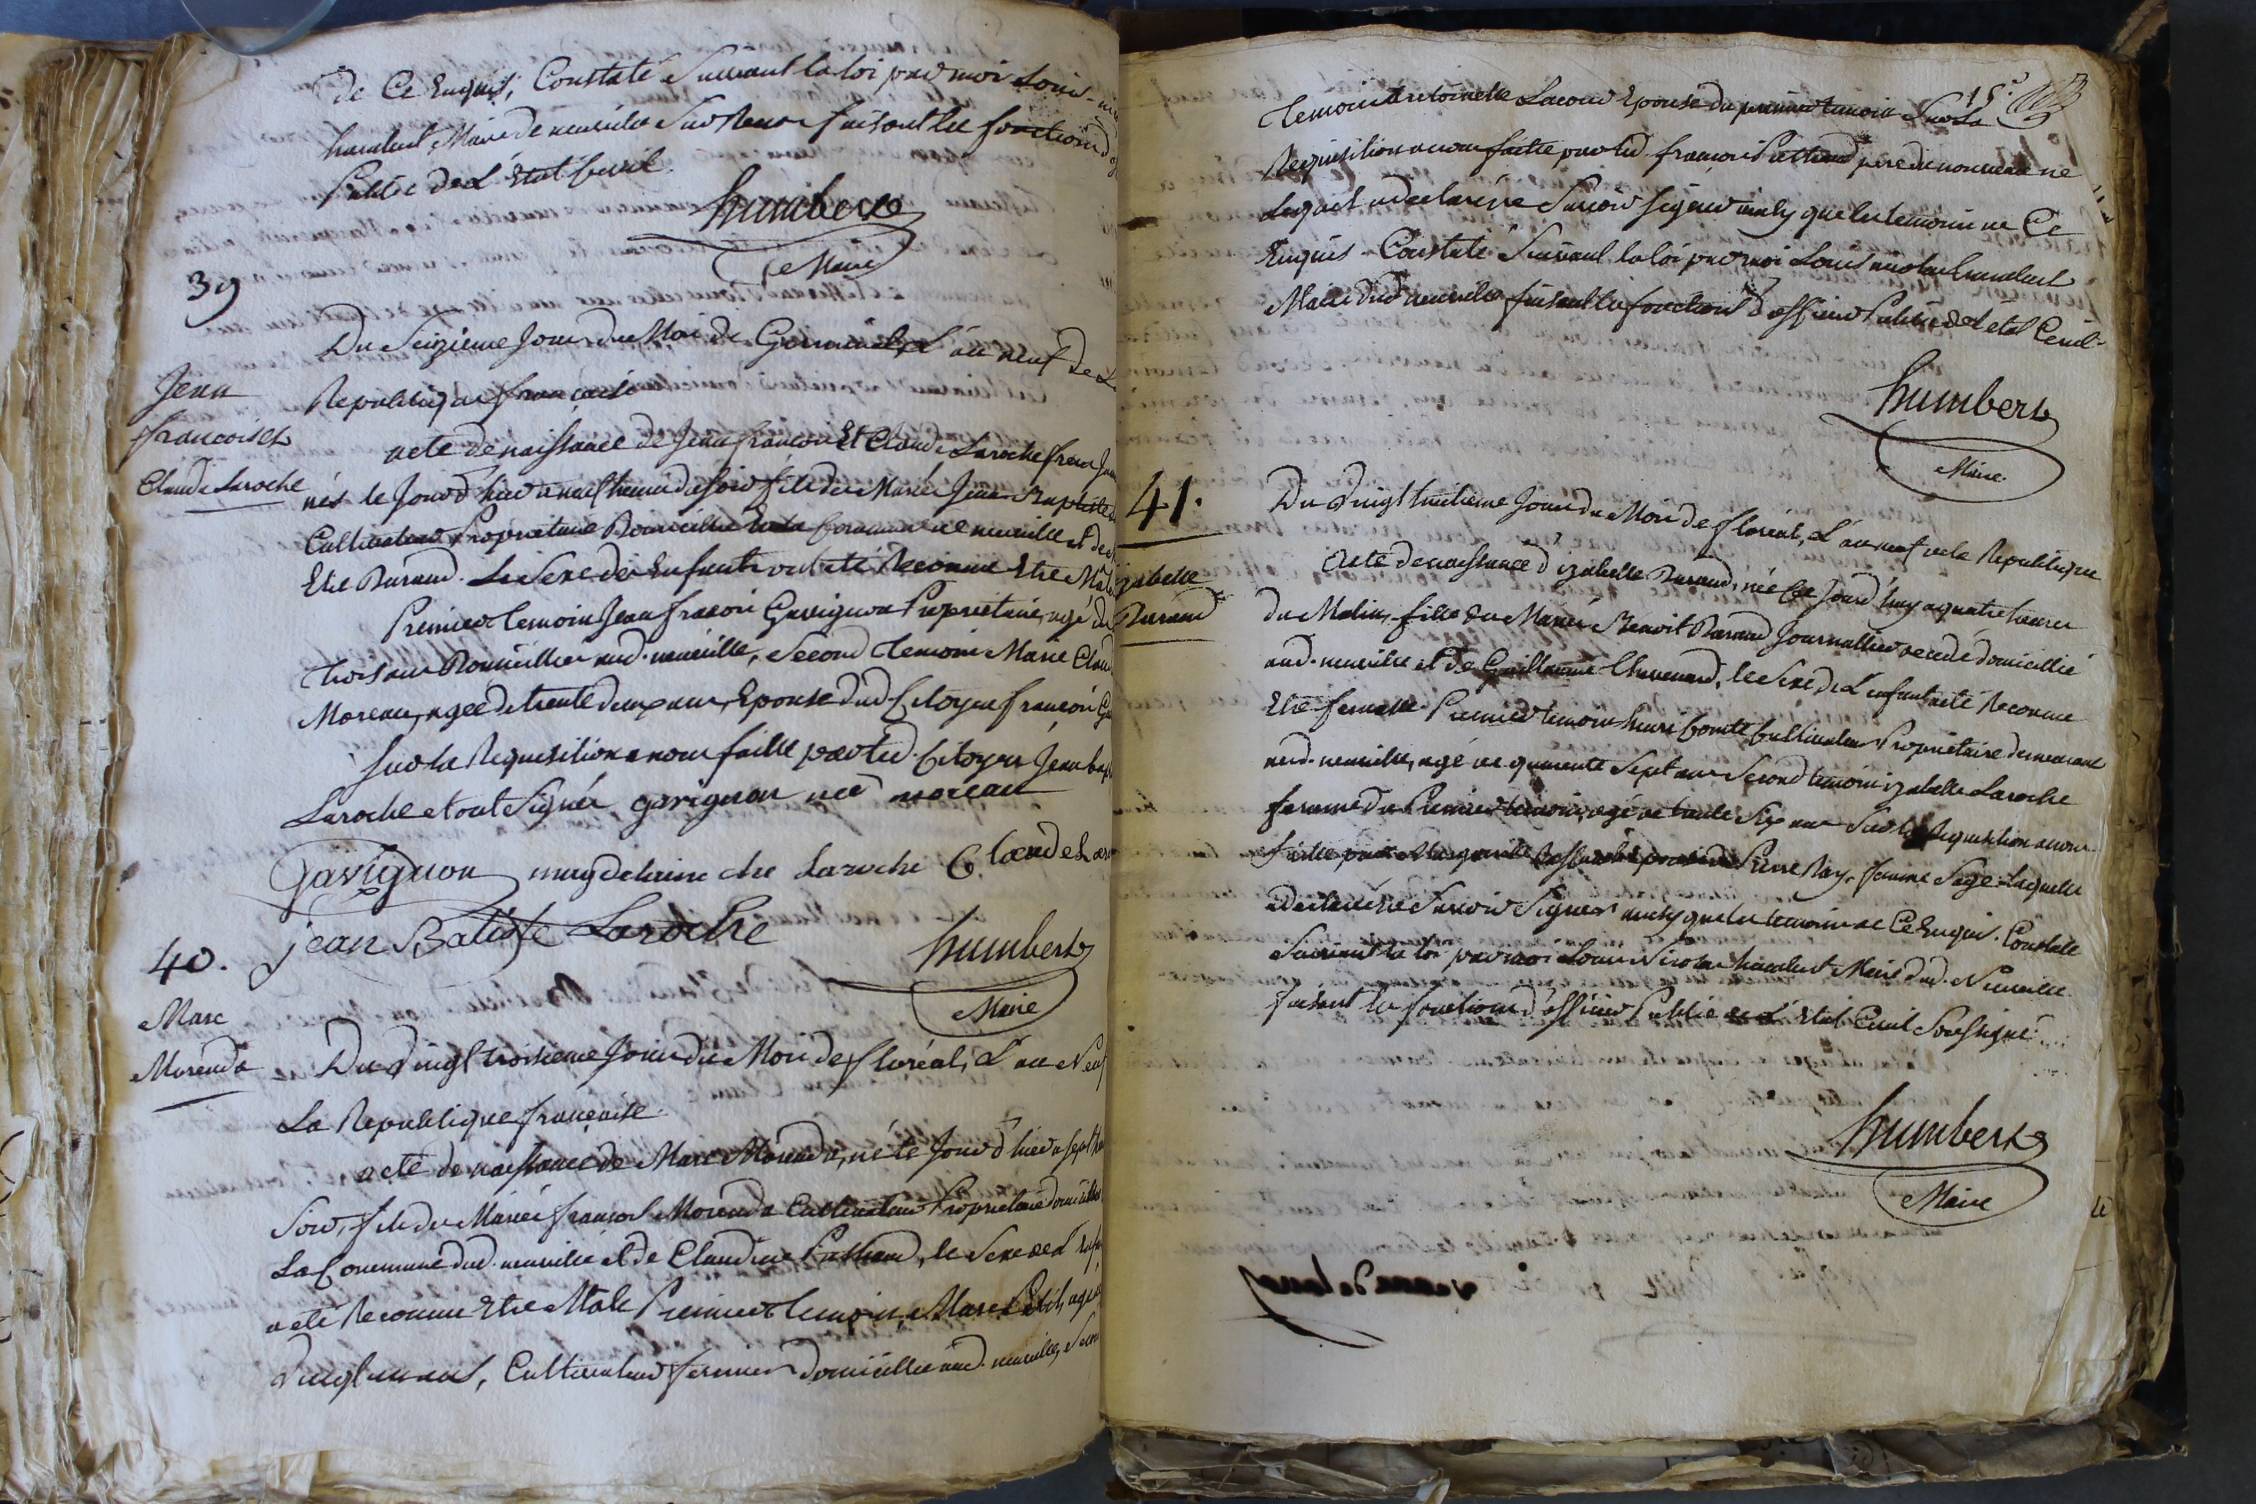 de Ce Enquis, Constaté Suivant la loi par moi Louis
humbert, Maire de neuville Sur Renon faisant les fonctions
Public de L'Etat Civil.
humbert
Maire
39
Du Seizième Jour du Mois de Germinal, L'an neuf de L
Republique française
Jean
francois et
Claude Laroche
acte de naissance de Jean francois Et Claude Laroche freres
nés le Jour d'hier a neuf heures du soir fils de Mariés Jean Baptiste
Cultivateur Proprietaire Domicillié En la Commune de neuville et de
Etié Buraud. Le Sexe des Enfants a eté Reconnu Etre Mâles
Premier temoin Jean francois Gavignon Proprietaire, agé de
trois ans Domicillier aud. neuville, Second temoin Marie Claud
Moreau, agée de trente deux ans, Epouse dud. Citoyen francois
Sur la Requisition a nous faitte par led. Citoyen Jean bap
Laroche et ont Signés gavignon née moreau
Gavignon magdelaine Laroche Claude Laro
jean Batiste Laroche
humbert
Maire
40.
Marc
Morendo
Du Vingt troisieme Jour du Mois de floréal, L'an Neuf
La Republique francaise
acte de naissance de Marc Morendo, né le Jour d'hier a sept
Soir, fils de Mariés francois Morendo Cultivateur Proprietaire
La Commune dud. neuville et de Claudine, le Sexe de L'
a eté Reconnu Etre Male Premier temoin, Marc Petit, agé
Vingt, Cultivateur fermier domicillié aud. neuville, Secon
15.
temoin Antoinette Lacour Epouse du premier temoin Sur La
Requisition a nous faitte par led. francois pere du nouveau né
Lequel a declaré ne Savoir Signer ainsy que les temoins de Ce
Enquis Constaté Suivant la loi par moi Louis nicolas humbert
Maire dud. neuville faisant les fonctions d'officier Public de L'etat Civil.
humbert
Maire
41.
Izabelle
Buraud
Du Vingt huitieme Jour du Mois de floréal, L'an neuf de la Republique
Acte de naissance d'izabelle Buraud, née Ce Jourd'huy a quatre heures
du Matin, fille de Mariés Benoit Buraud Journallier domicillié
aud. neuville et de Guillaume Chavenard, le Sexe de L'enfant a eté Reconnu
Etre femelle. Premier temoin henri Comte Cultivateur Proprietaire demeurant
aud. neuville, agé de quarante Sept ans Second temoin izabelle Laroche
femme du Premier temoin, agé de trente Six ans Sur la Requisition a nous
faitte par Marguerite Pierre Ray, femme Sage Laquelle
a declaré ne Savoir Signer ainsy que les temoins de Ce Enquis. Constaté
Suivant la loi par moi Louis Nicolas humbert Maire dud. Neuville
faisant les fonctions d'officier Public de L'Etat Civil Soussigné.
humbert
Maire